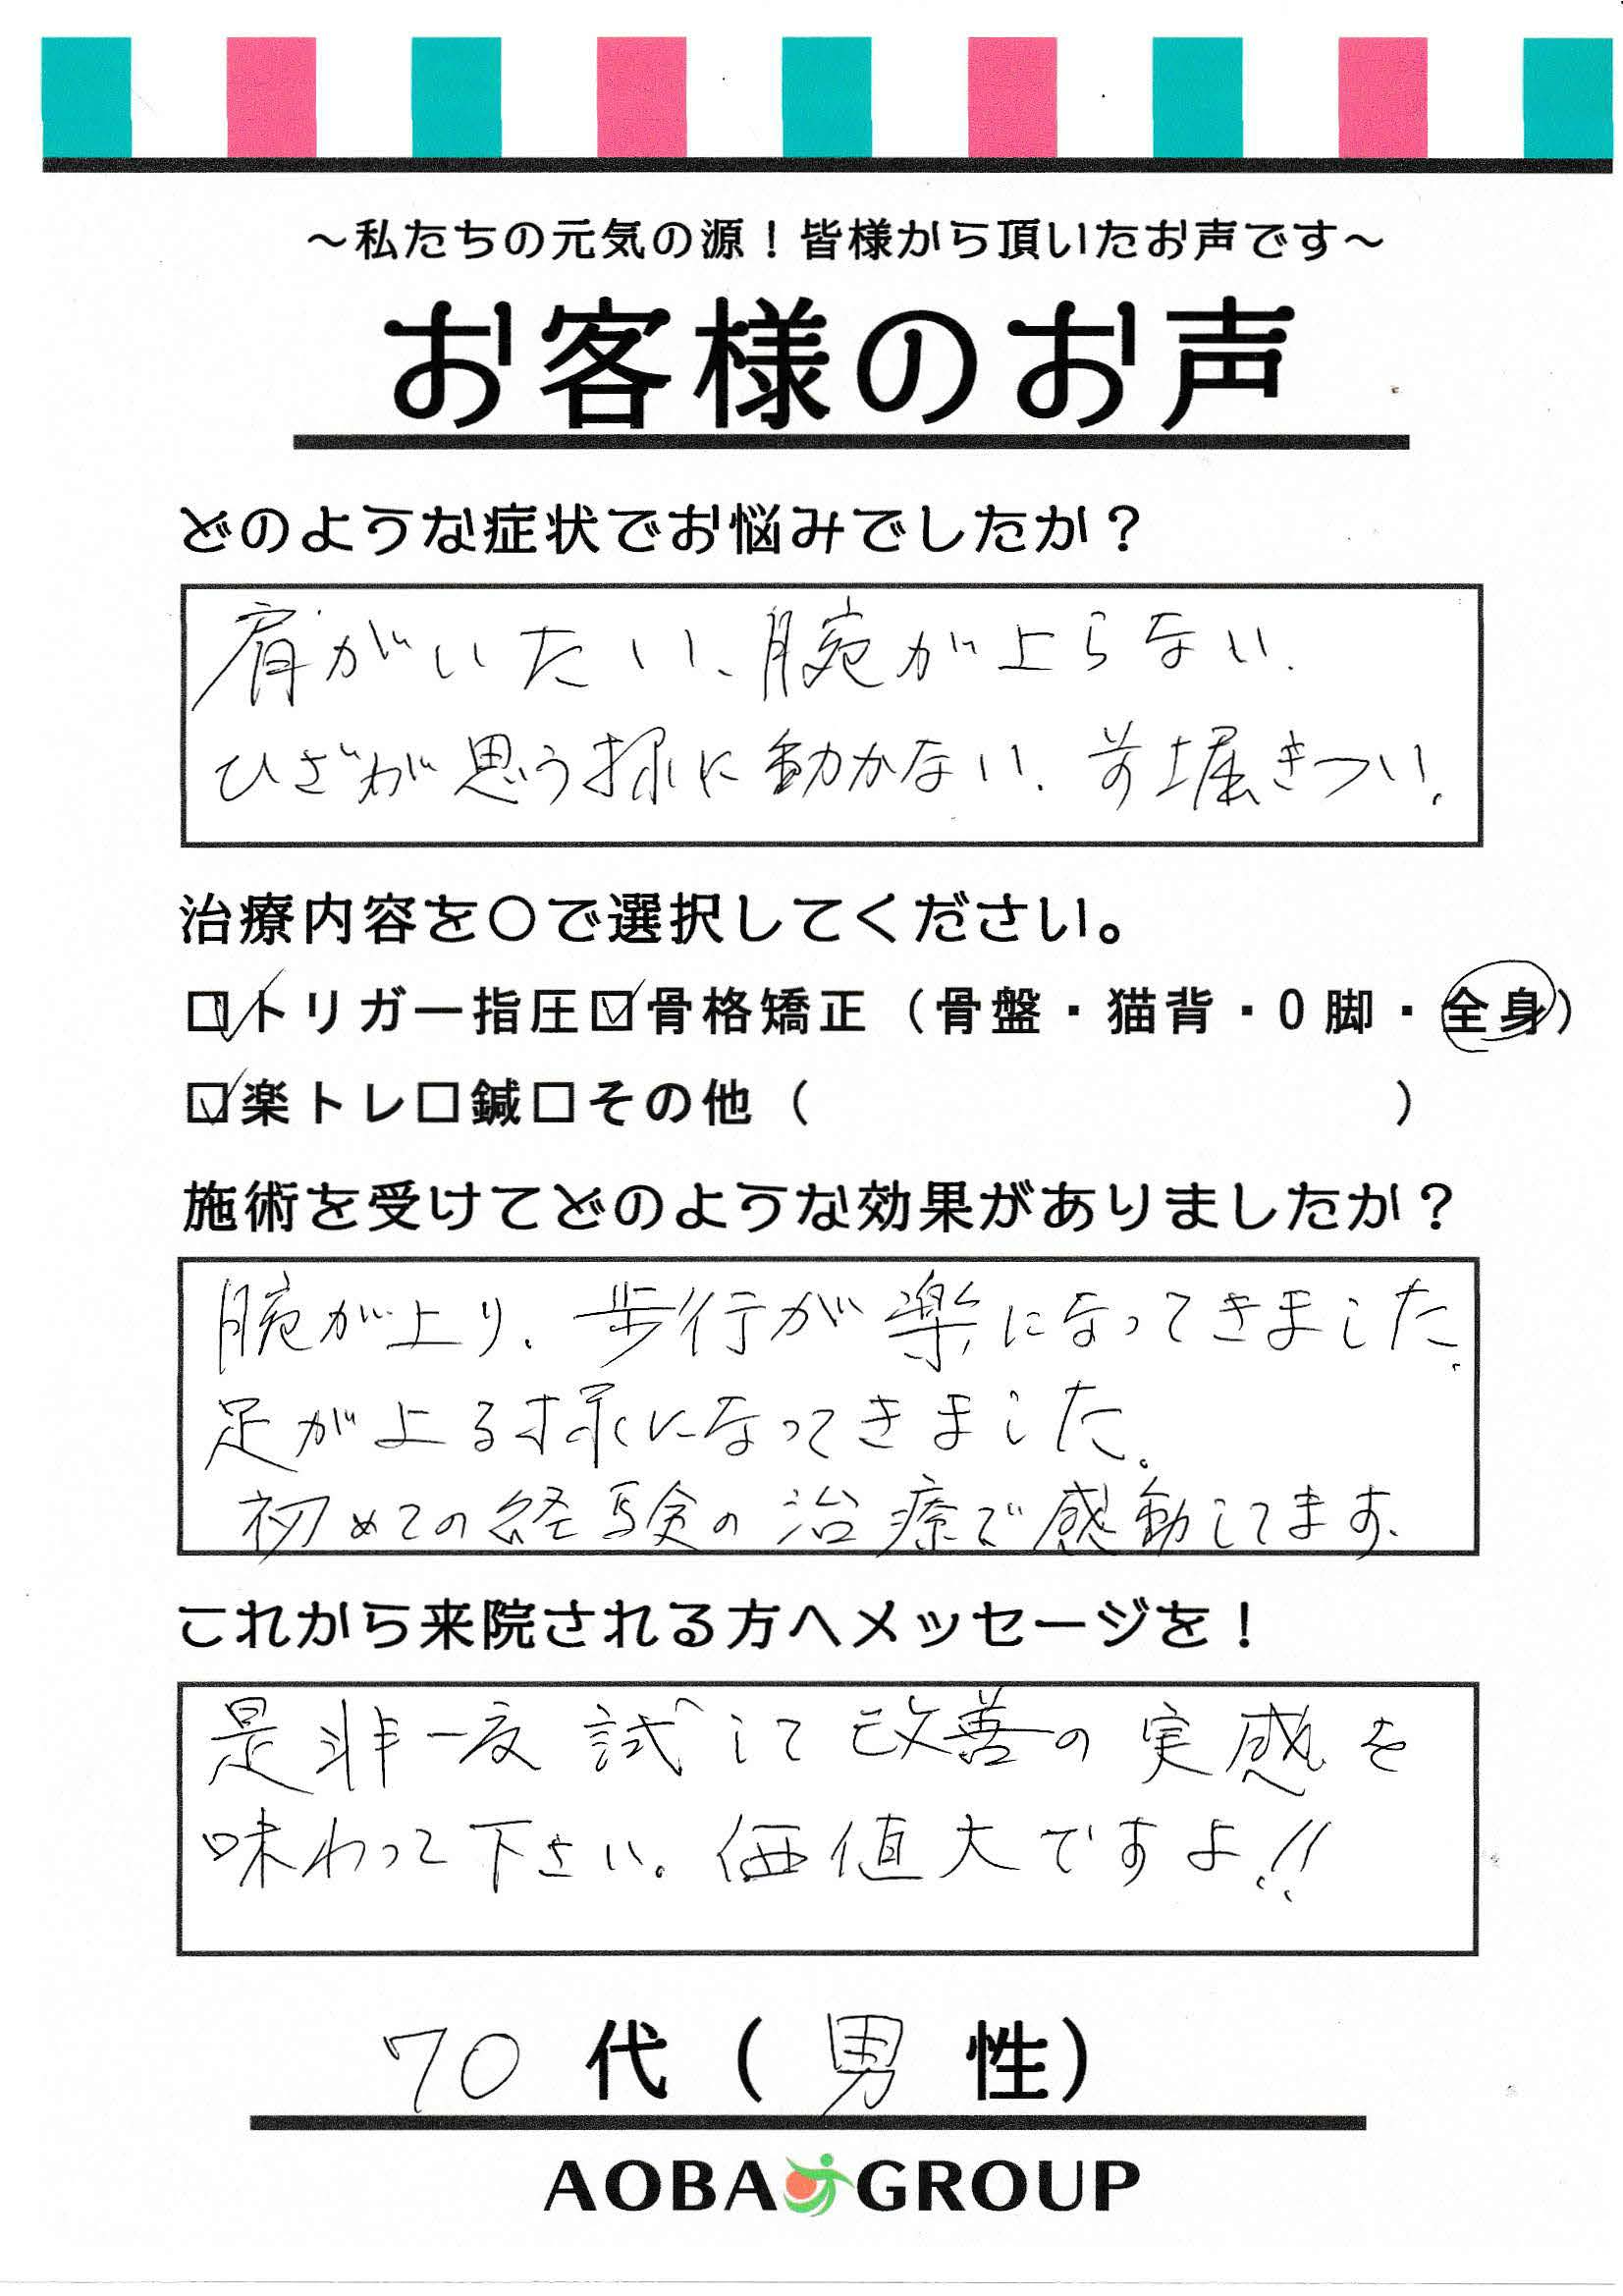 ～私たちの元気の源！皆様から頂いたお声です～
お客様のお声
どのような症状でお悩みでしたか？
肩がいたい、腕が上らない、
ひざが思う様に動かない、きつい。
治療内容を○で選択してください。
□トリガー指圧□骨格矯正（骨盤・猫背・O脚・全身）
□楽トレ□鍼□その他（　　　　　　　　　　）
施術を受けてどのような効果がありましたか？
腕が上り、歩行が楽になってきました。
足が上る様になってきました。
初めての経験の治療で感動してます、
これから来院される方へメッセージを！
是非一度試して改善の実感を
味わって下さい。価値大ですよ!!
70代（男性）
AOBA GROUP